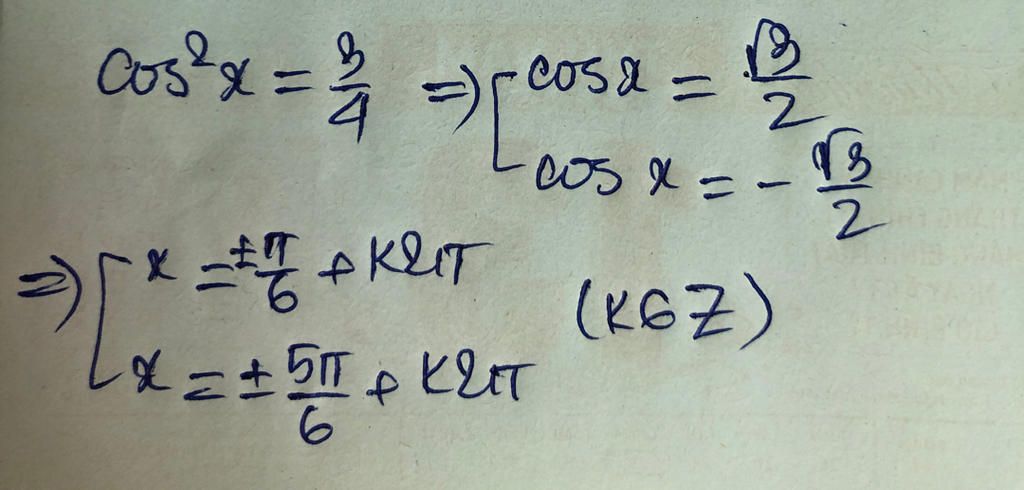 cos²x = 3/4 => [ cosx = √3/2
cos x = - √3/2
=> [ x = ±π/6 + K2π
(K∈Z)
x = ± 5π/6 + K2π